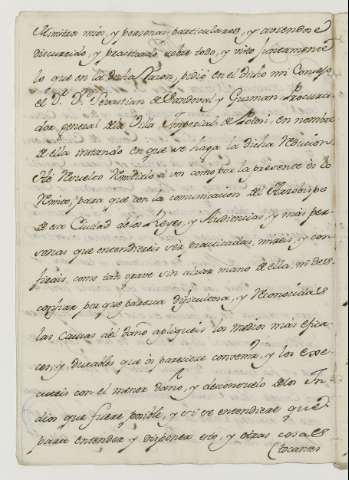 Ministros mios, y personas particulares, y aviendose
discurrido, y practicado sobre todo, y visto juntamente
lo que en la dicha razon, pidió en el dicho mi Consejo
el Dr. Dn. Sevastian de Sandoval y Guzman Procura
dor general de la Villa Imperial de Potosi en nombre
de ella instando en que se haga la dicha Reducion
He Resuelto Remitirlo a vos como por la presente os lo
Remito, para que con la comunicacion del Arzobispo
de esa Ciudad de los Reyes, y Audiencias, y mas per
sonas que entendiereis sea practicadas, mireis, y con
firais, como tan grave sin alzar mano de ella, ni des
confiar por que parezca dificultosa, y Reconocidas
las Causas del daño apliqueis los medios mas efica
ces y durables que os pareciere convenir, y los exe
cuteis con el menor daño, y desconsuelo de los In
dios que fuere posible, y si se entendiere que
para entender y disponer esto, y otras cosas
tocantes